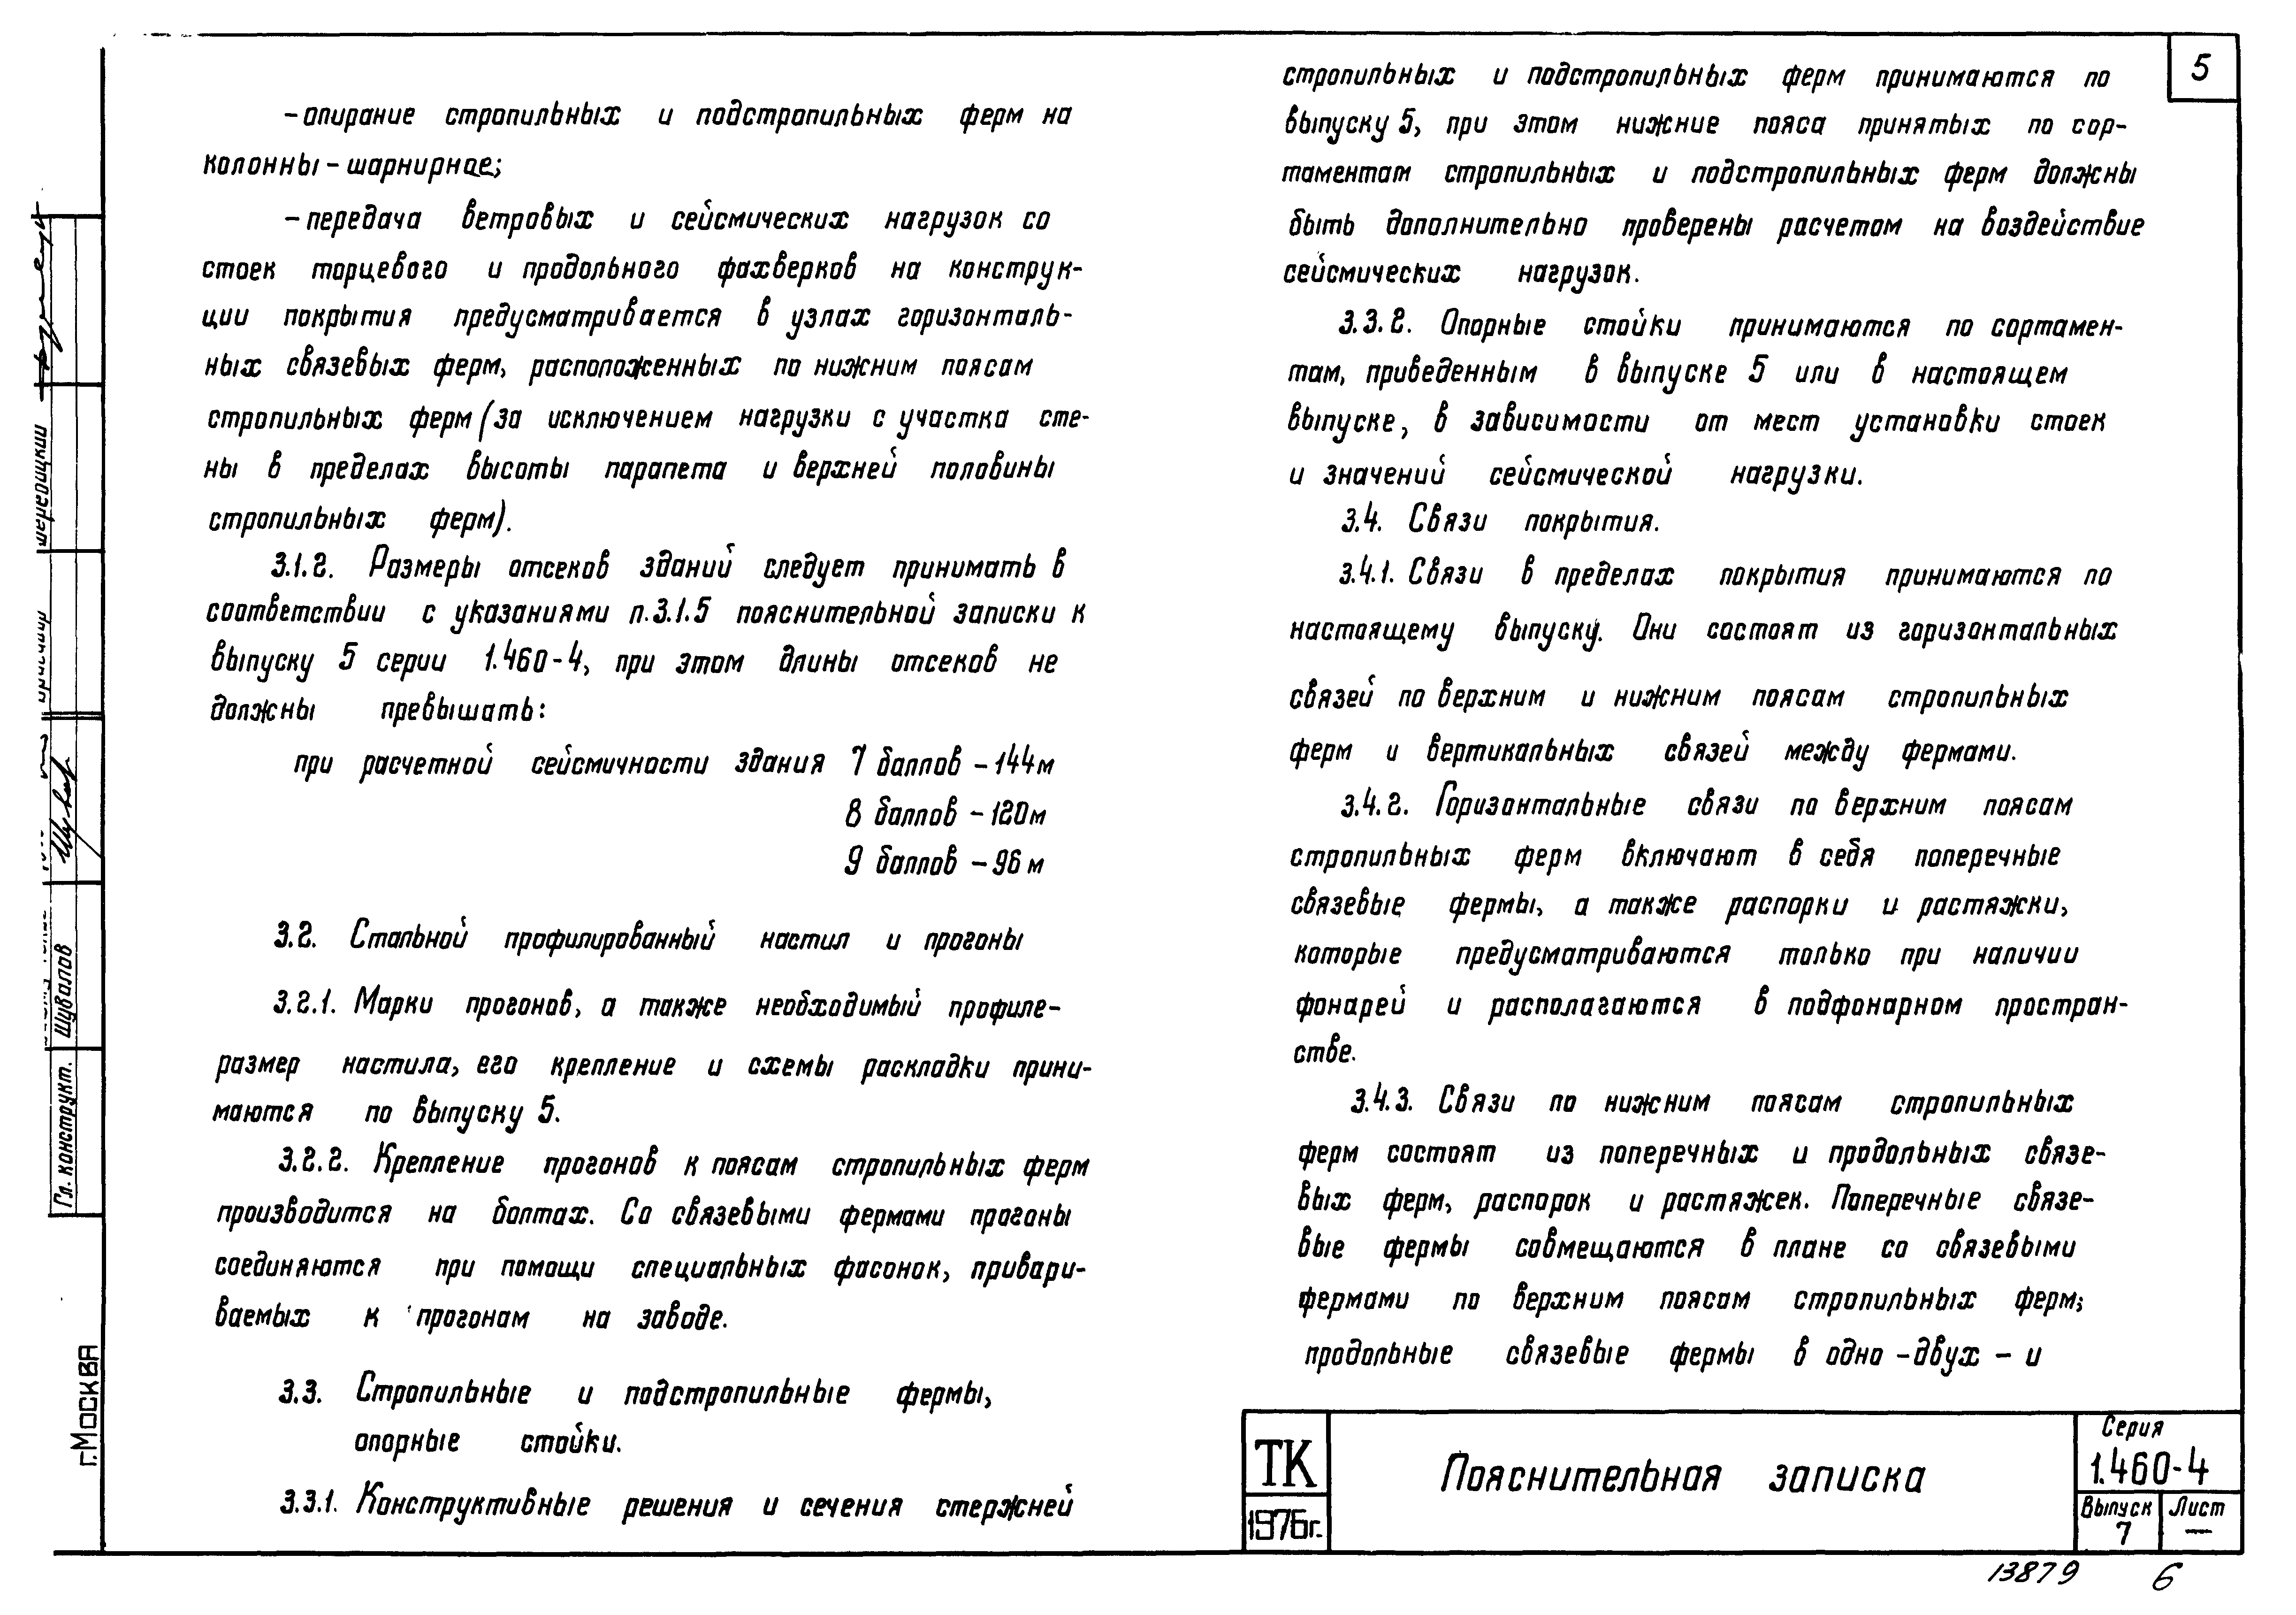 5
– опирание стропильных и подстропильных ферм на
колонны – шарнирное;
– передача ветровых и сейсмических нагрузок со
стоек торцевого и продольного фахверков на конструк-
ции покрытия предусматривается в узлах горизонталь-
ных связевых ферм, расположенных по нижним поясам
стропильных ферм (за исключением нагрузки с участка сте-
ны в пределах высоты парапета и верхней половины
стропильных ферм).
3.1.2. Размеры отсеков зданий следует принимать в
соответствии с указаниями п.3.1.5 пояснительной записки к
выпуску 5 серии 1.460-4, при этом длины отсеков не
должны превышать:
при расчетной сейсмичности здания 7 баллов – 144м
8 баллов – 120м
9 баллов – 96м
3.2. Стальной профилированный настил и прогоны
3.2.1. Марки прогонов, а также необходимый профиле-
размер настила, его крепление и схемы раскладки прини-
маются по выпуску 5.
3.2.2. Крепление прогонов к поясам стропильных ферм
производится на болтах. Со связевыми фермами прогоны
соединяются при помощи специальных фасонок, привари-
ваемых к прогонам на заводе.
3.3. Стропильные и подстропильные фермы,
опорные стойки.
3.3.1. Конструктивные решения и сечения стержней
стропильных и подстропильных ферм принимаются по
выпуску 5, при этом нижние пояса принятых по сор-
таментам стропильных и подстропильных ферм должны
быть дополнительно проверены расчетом на воздействие
сейсмических нагрузок.
3.3.2. Опорные стойки принимаются по сортамен-
там, приведенным в выпуске 5 или в настоящем
выпуске, в зависимости от мест установки стоек
и значений сейсмической нагрузки.
3.4. Связи покрытия.
3.4.1. Связи в пределах покрытия принимаются по
настоящему выпуску. Они состоят из горизонтальных
связей по верхним и нижним поясам стропильных
ферм и вертикальных связей между фермами.
3.4.2. Горизонтальные связи по верхним поясам
стропильных ферм включают в себя поперечные
связевые фермы, а также распорки и растяжки,
которые предусматриваются только при наличии
фонарей и располагаются в подфонарном простран-
стве.
3.4.3. Связи по нижним поясам стропильных
ферм состоят из поперечных и продольных связе-
вых ферм, распорок и растяжек. Поперечные связе-
вые фермы совмещаются в плане со связевыми
фермами по верхним поясам стропильных ферм;
продольные связевые фермы в одно – двух – и
ТК
1976г.
Пояснительная записка
Серия
1.460-4
Выпуск
7
Лист
—
13879
6
Гл. конструкт.
Шувалов
г. Москва